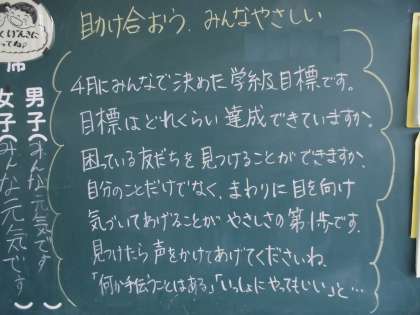 助け合おう、みんなやさしい
4月にみんなで決めた学級目標です。
目標はどれくらい達成できていますか。
困っている友だちを見つけることができますか。
自分のことだけでなく、まわりに目を向け
気づいてあげることがやさしさの第1歩です。
見つけたら声をかけてあげてくださいね。
「何か手伝うことはある」「いっしょにやってもいい」と…
席
男子（みんな元気です）
女子（みんな元気です）